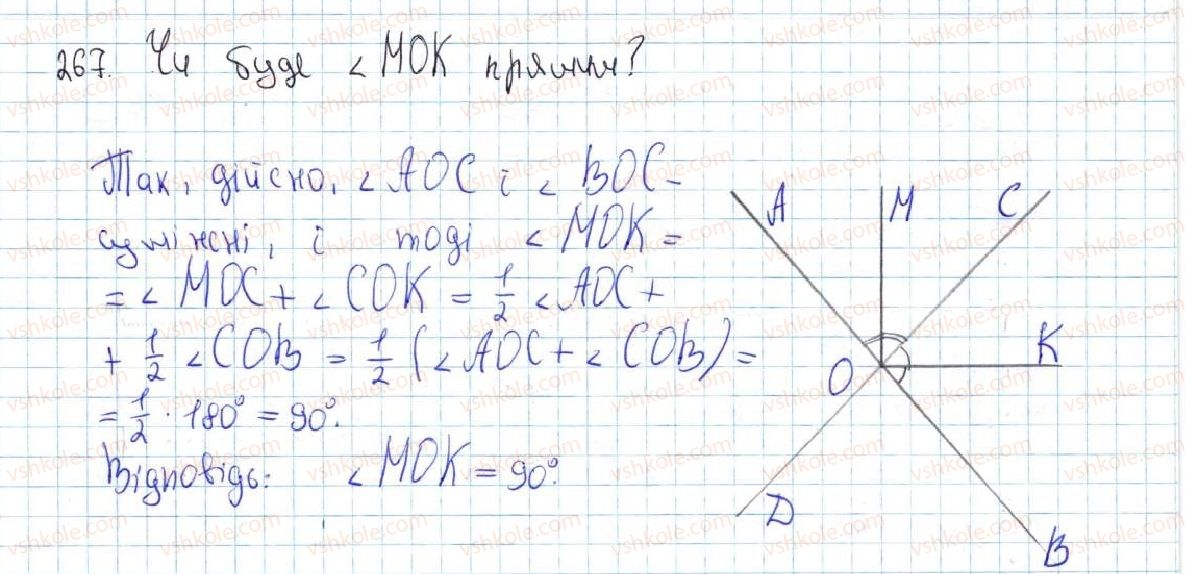 267. Чи буде ∠MOK прямим?
Так, дійсно, ∠AOC і ∠BOC -
суміжні, і тоді ∠MOK =
= ∠MOC + ∠COK = 1/2 ∠AOC +
+ 1/2 ∠COB = 1/2 (∠AOC + ∠COB) =
= 1/2 · 180° = 90°.
Відповідь: ∠MOK = 90°.
A M C
O K
D B
vshkole.com